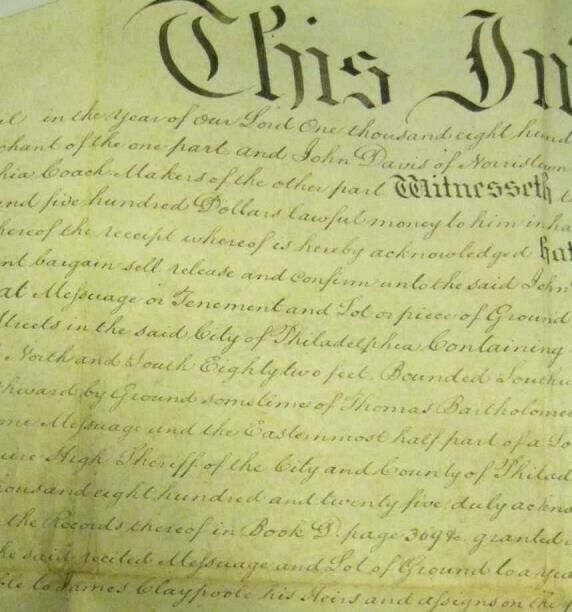 This In
il in the Year of our Lord One thousand eight hund
chant of the one part and John Davis of Norristown
hia Coach Makers of the other part Witnesseth t
and five hundred Dollars lawful money to him in ha
hereof the receipt whereof is hereby acknowledged hat
nt bargain sell release and confirm unto the said John
at Messuage or Tenement and Lot or piece of Ground
Streets in the said City of Philadelphia Containing
North and South Eighty two feet. Bounded Southw
thward by Ground sometime of Thomas Bartholome
me Messuage and the Easternmost half part of a Lo
uire High Sheriff of the City and County of Philad
housand eight hundred and twenty five duly ackno
the Records thereof in Book D. page 369 &c. granted
he said recited Messuage and Lot of Ground to a yea
ble to James Claypoole his Heirs and assigns on the